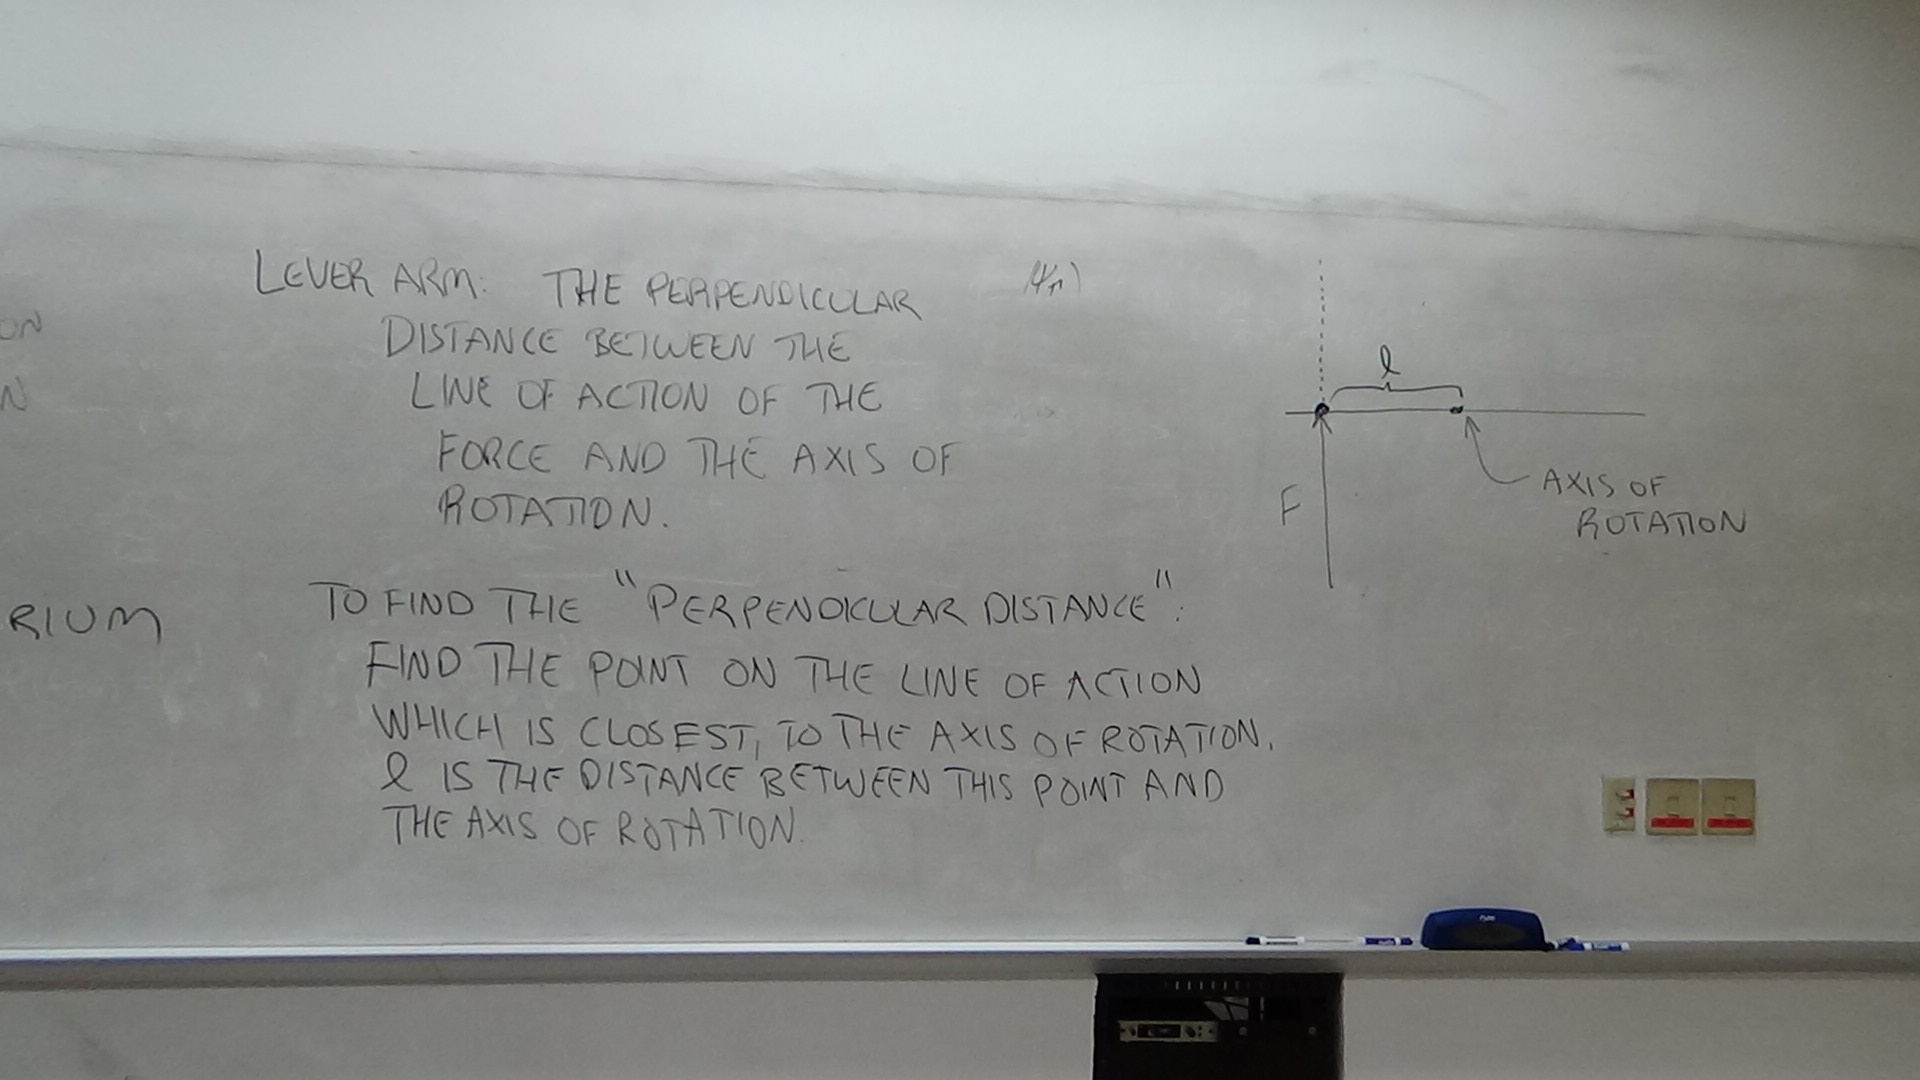 LEVER ARM: THE PERPENDICULAR
DISTANCE BETWEEN THE
LINE OF ACTION OF THE
FORCE AND THE AXIS OF
ROTATION.
TO FIND THE "PERPENDICULAR DISTANCE":
FIND THE POINT ON THE LINE OF ACTION
WHICH IS CLOSEST, TO THE AXIS OF ROTATION.
l IS THE DISTANCE BETWEEN THIS POINT AND
THE AXIS OF ROTATION.
ON
N
RIUM
l
F
AXIS OF
ROTATION